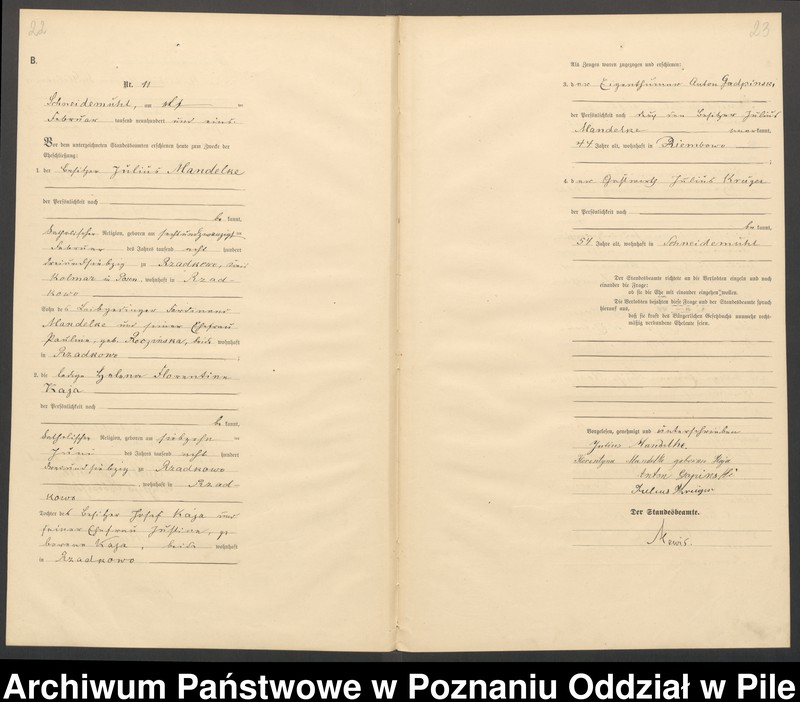 22
B.
Nr. 11
Schneidemühl, am elf
Februar tausend neunhundert und eins
Vor dem unterzeichneten Standesbeamten erschienen heute zum Zwecke der
Eheschließung:
1. der Besitzer Julius Mandelke
der Persönlichkeit nach
be kannt,
katholischer Religion, geboren am sechsundzwanzigsten
Februar des Jahres tausend acht hundert
dreiundsiebzig in Rzadkowo, Kreis
Kolmar i. Posen, wohnhaft in Rzad-
kowo
Sohn des Leibgedinger Ferdinand
Mandelke und seiner Ehefrau
Pauline, geb. beide wohnhaft
in Rzadkowo ;
2. die ledige Helena Florentine
Kaja
der Persönlichkeit nach
be kannt,
katholischer Religion, geboren am siebzehn
Juni des Jahres tausend acht hundert
dreiundsiebzig in Rzadkowo
, wohnhaft in Rzad-
kowo
Tochter des Besitzer Josef Kaja und
seiner Ehefrau Justine, ge-
borene Kaja, beide wohnhaft
in Rzadkowo
23
Als Zeugen waren zugezogen und erschienen:
3. der Eigenthümer Anton Gadpinski
der Persönlichkeit nach durch den Besitzer Julius
Mandelke anerkannt,
44 Jahre alt, wohnhaft in Dziembowo
;
4. der Gastwirth Julius Krüger
der Persönlichkeit nach
be kannt,
54 Jahre alt, wohnhaft in Schneidemühl
Der Standesbeamte richtete an die Verlobten einzeln und nach
einander die Frage:
ob sie die Ehe mit einander eingehen wollen.
Die Verlobten bejahten diese Frage und der Standesbeamte sprach
hierauf aus,
daß sie kraft des Bürgerlichen Gesetzbuchs nunmehr recht-
mäßig verbundene Eheleute seien.
Vorgelesen, genehmigt und unterschrieben
Julius Mandelke.
Florentyna Mandelke geborene Kaja
Anton
Julius Krüger
Der Standesbeamte.
Mewis.
Archiwum Państwowe w Poznaniu Oddział w Pile